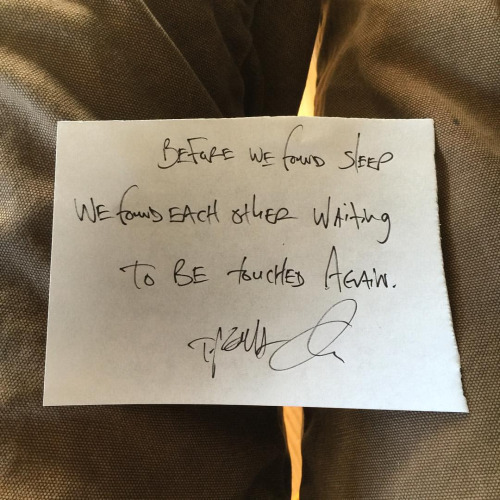 BEFORE WE found SLEEP
WE found EACH other Waiting
To BE touched AGAIN.